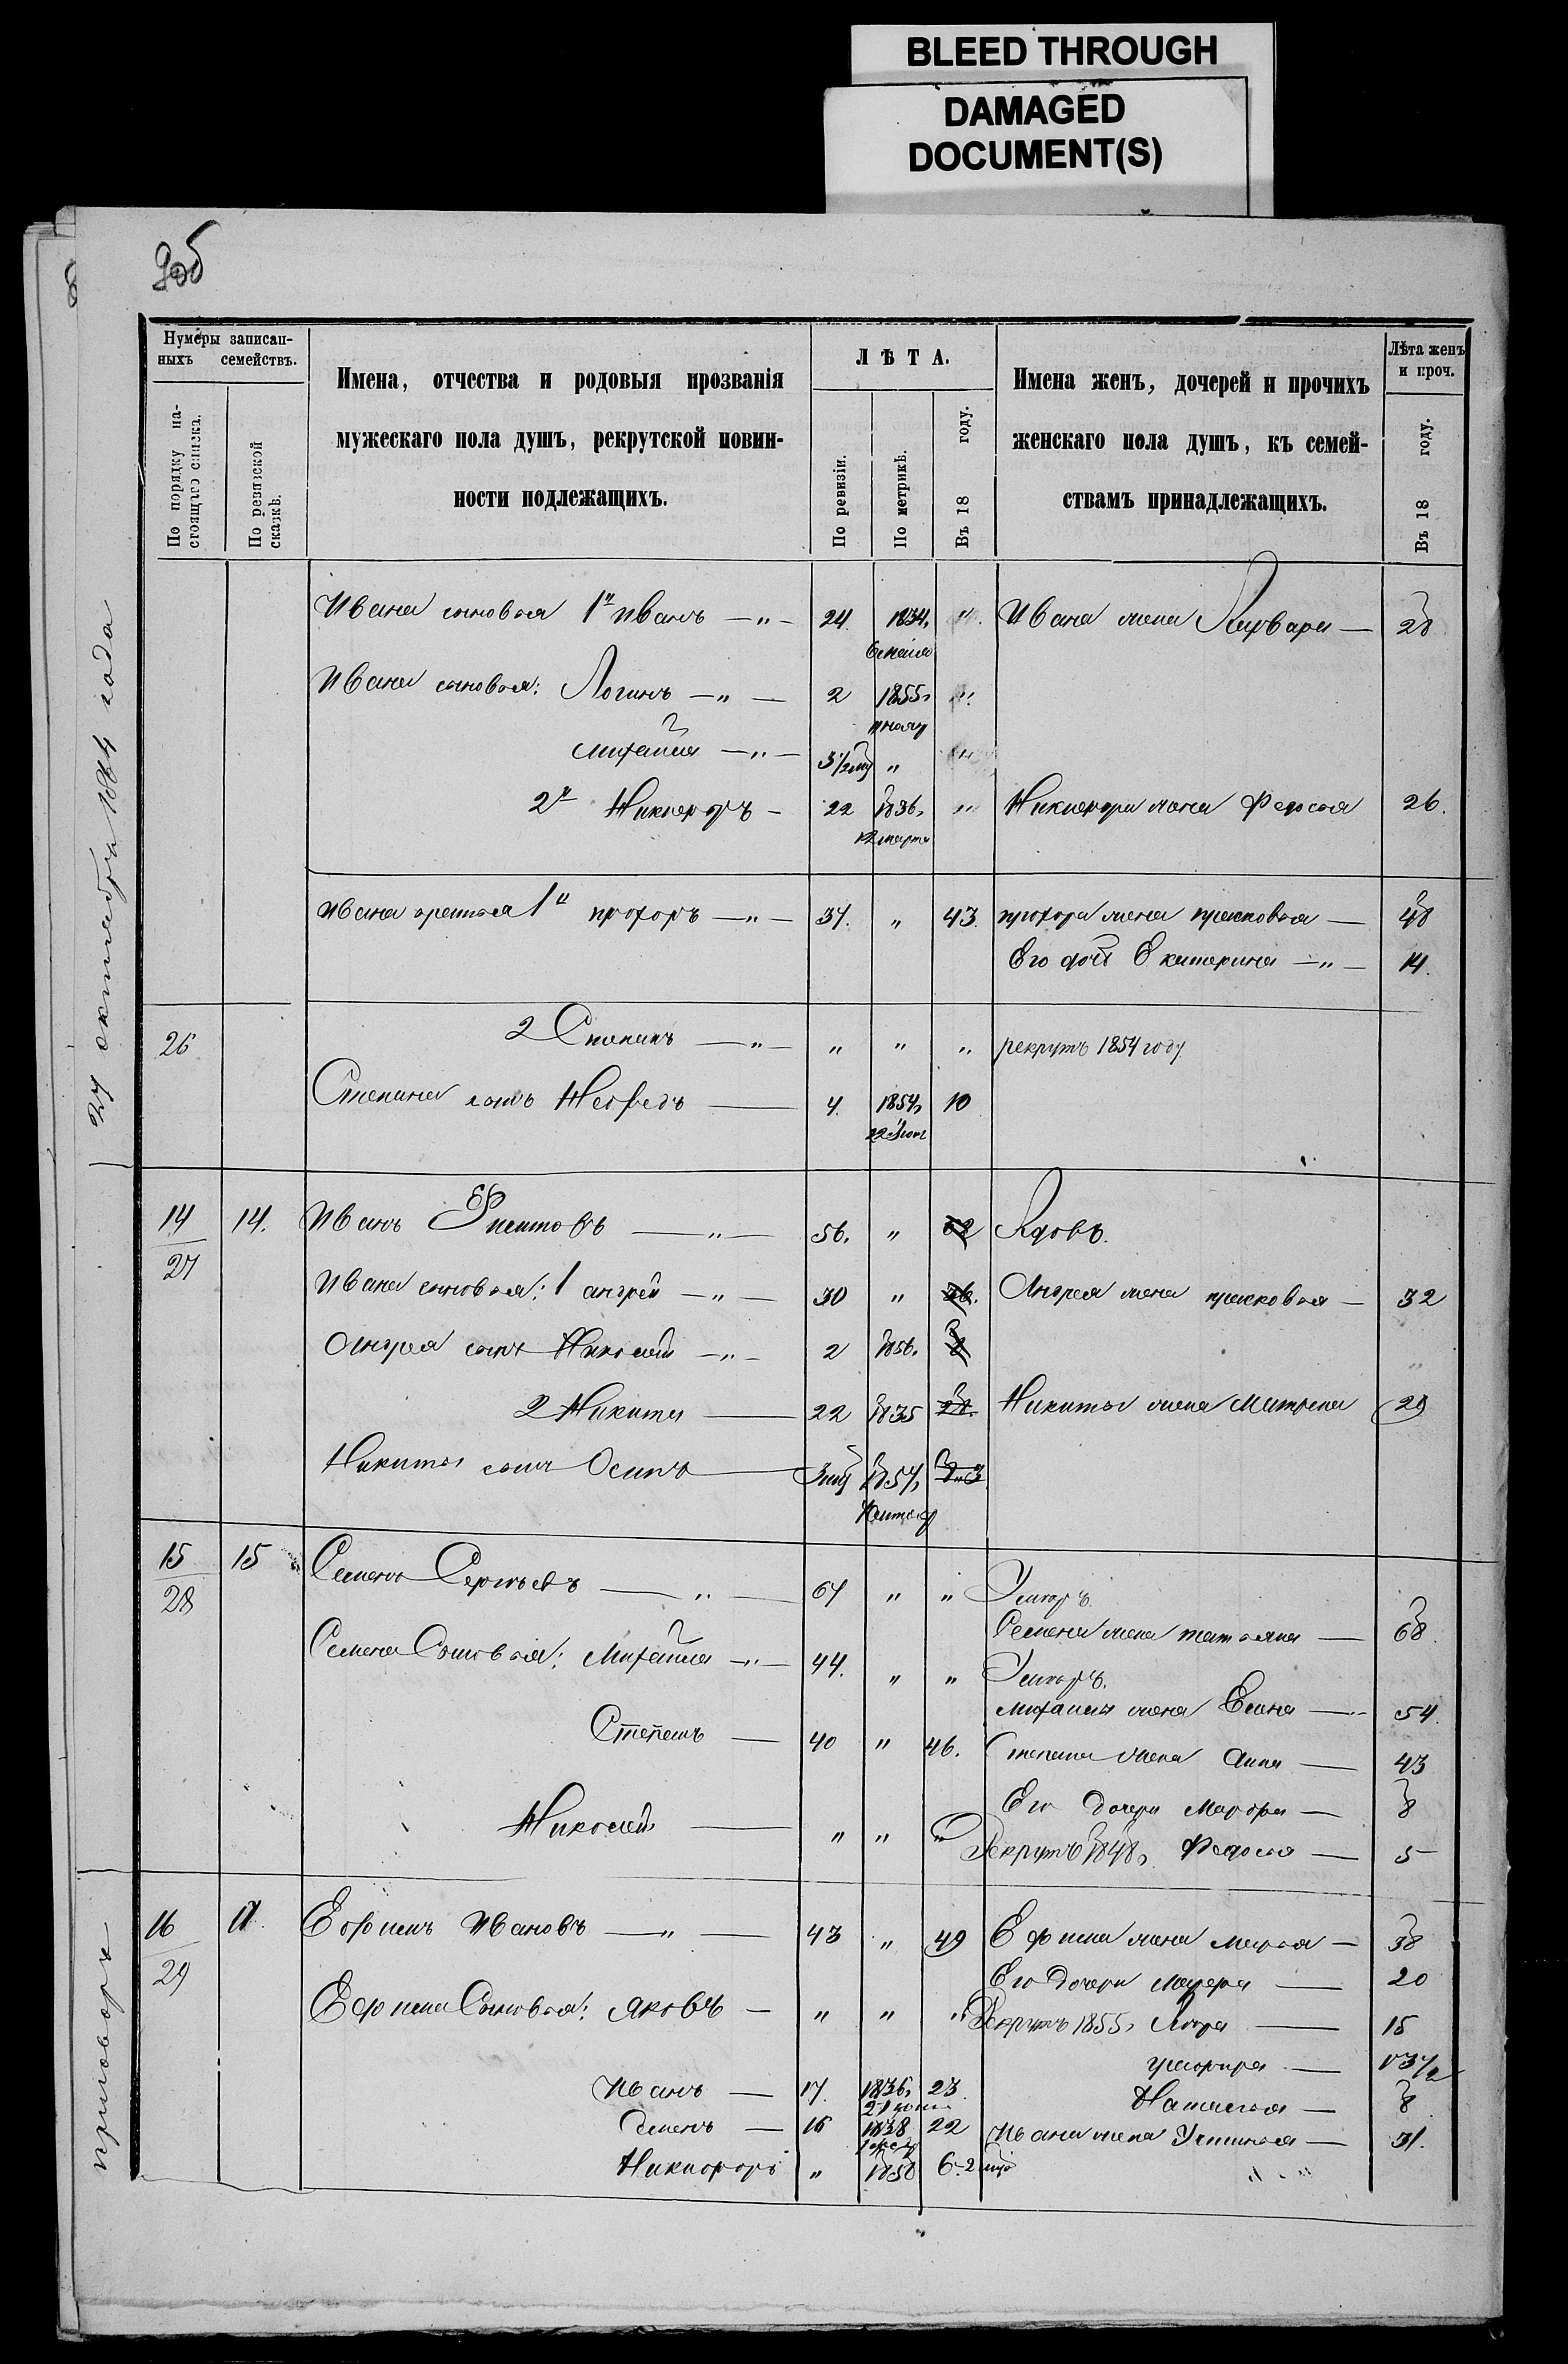 BLEED THROUGH
DAMAGED
DOCUMENT(S)
Нумеры записан-
ныхъ семействъ.
По порядку на-
стоящаго списка.
По ревизской
сказкѣ.
Имена, отчества и родовыя прозванія
мужескаго пола душъ, рекрутской повин-
ности подлежащихъ.
ЛѢТА.
По ревизіи.
По метрикѣ.
Въ 18 году.
Имена женъ, дочерей и прочихъ
женскаго пола душъ, къ семей-
ствамъ принадлежащихъ.
Лѣта женъ
и проч.
Въ 18 году.
27 октября 1864 года
приговоръ
Ивана сыновья 1й Иванъ — " — 24 1834, " Ивана жена — 28
6 мая
Ивана сыновья: Логинъ — " — 2 1855, "
Михайла — " — 3 1/2 "
2й Никифоръ — 22 1836, " Никифора жена Федосья 26.
12 марта
Ивана братья 1й Прохоръ — " — 37. " 43. Прохора жена Прасковья — 48
Его дочь Екатерина — " — 14.
26 2 Степанъ — " — " " " рекрутъ 1854 году
Степана сынъ Мефедъ — 4. 1854, 10
14 14. Иванъ — " — 56. " 62 Вдовъ.
27
Ивана сыновья: 1 Андрей — " — 30 " 36. Андрея жена Прасковья — 32
Андрея сынъ Николай — " — 2 1856. 8
2 Никита — 22 1835 28. Никиты жена Матрена 29
Никиты сынъ Осипъ — 1857,
15 15 Семенъ Сергѣевъ — " — 67 " " Умеръ.
28
Семена жена Татьяна — 68.
Семена Сыновья: Михайла — " — 44. " " Умеръ.
Михайлы жена Елена — 54.
Степанъ — 40 " 46. Степана жена Анна — 43
Его дочери Марфа — 8
Николай — " " " Рекрутъ 1848, Федосья — 5
16 Ефимъ Ивановъ — " — 43 " 49 Ефима жена Марья — 38
29
Его дочери — 20
Ефима Сыновья: Яковъ — " " " Рекрутъ 1855, — 15
13 1/2
Иванъ — 17. 1836, 23
Наталья — 8
Семенъ — 16 1838 22 Ивана жена Устинья — 31.
Никифоръ " 1858 6. 2